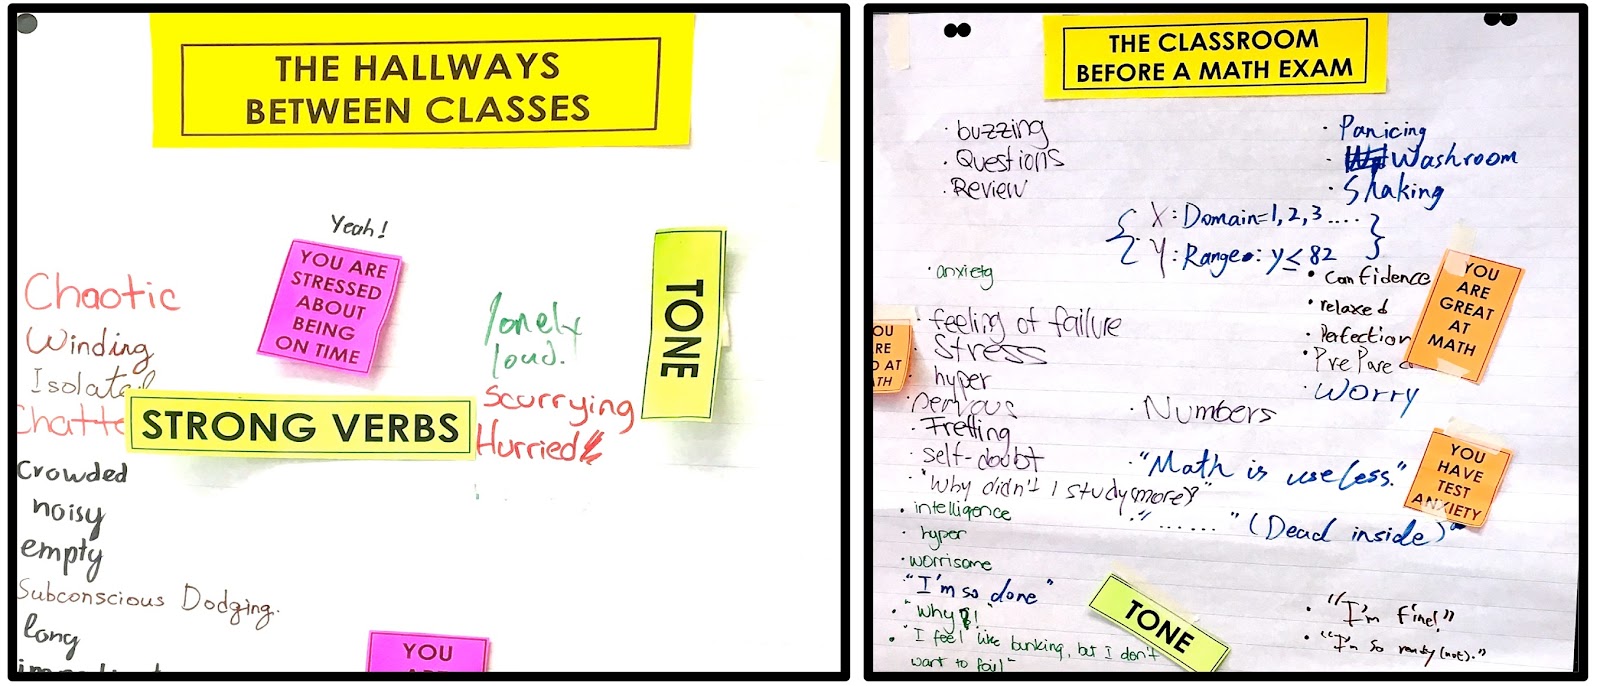 THE HALLWAYS
BETWEEN CLASSES
Yeah!
YOU ARE
STRESSED
ABOUT
BEING
ON TIME
TONE
Chaotic
Winding
Isolated
Chatte
STRONG VERBS
lonely
loud.
Scurrying
Hurried
Crowded
noisy
empty
Subconscious Dodging.
long
YOU
THE CLASSROOM
BEFORE A MATH EXAM
· buzzing
· Questions
· Review
· Panicing
· Washroom
· Shaking
X: Domain=1,2,3....
Y: Range: y≤82
· anxiety
· feeling of failure
· Stress
· hyper
· nervous
· Fretting
· self-doubt
· "Why didn't I study(more)?"
· intelligence
· hyper
· worrisome
"I'm so done"
· "Why?!"
· "I feel like bunking, but I don't
want to fail"
· Confidence
· relaxed
· Perfection
· PrePared
· Worry
YOU
ARE
GREAT
AT
MATH
OU
RE
D AT
TH
· Numbers
· "Math is useless."
"......" (Dead inside)
YOU
HAVE
TEST
ANXIETY
TONE
· "I'm fine!"
· "I'm so ready (not)."